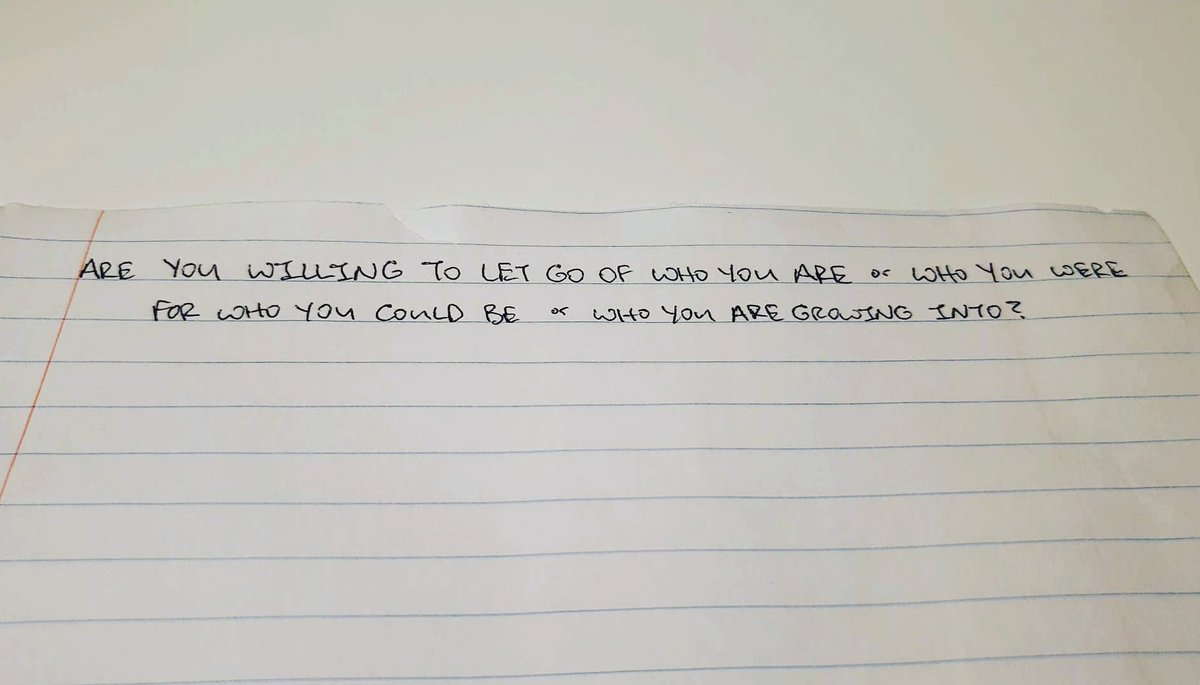 ARE YOU WILLING TO LET GO OF WHO YOU ARE or WHO YOU WERE
FOR WHO YOU COULD BE or WHO YOU ARE GROWING INTO?